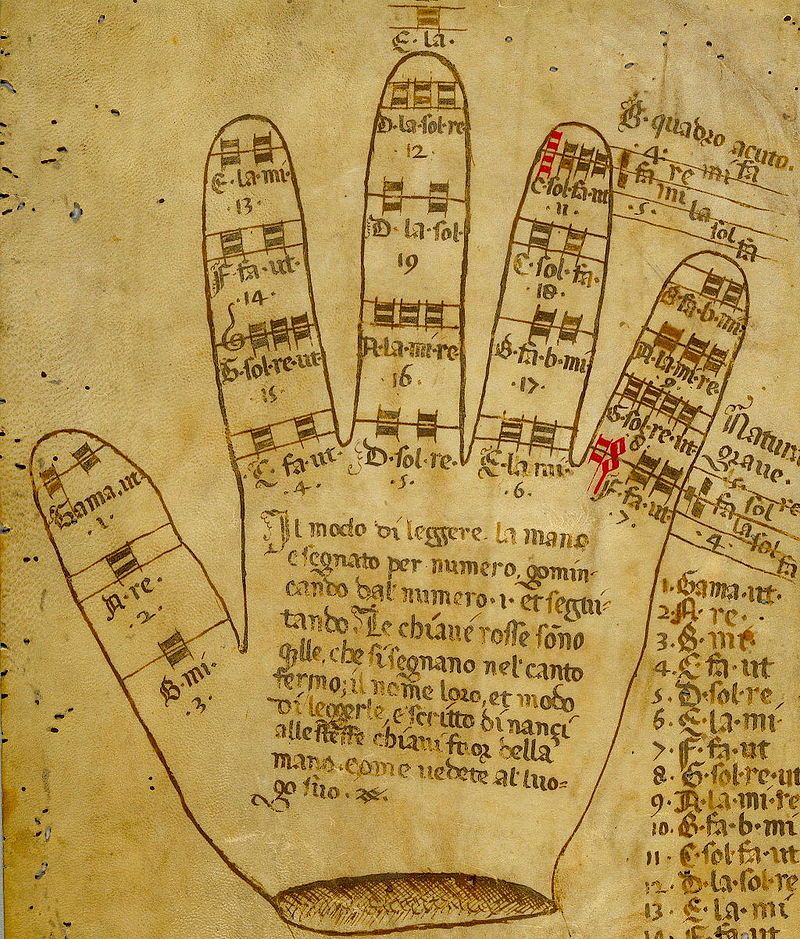 E·la·
D·la·sol·re
12
E·la·mi·
·13·
D·la·sol·
19
F·fa·ut·
·14·
A·la·mi·re·
16·
G·sol·re·ut·
15
C·fa·ut·
·4·
D·sol·re·
·5·
E·la·mi·
·6·
C·sol·fa·ut
11·
C·sol·fa·
·18·
B·fa·b·mi
·17·
B·fa·b·mi·
A·la·mi·re·
9
G·sol·re·ut·
8
F·fa·ut·
·7·
B·quadro acuto.
·4· re mi fa
fa mi la sol fa
·5·
Natura
grave.
fa sol re
la sol fa
·4·
Gama·ut·
·1·
A·re·
·2·
B·mi·
·3·
Il modo di leggere la mano
e segnato per numero, comin-
cando dal numero·1· et segui-
tando Le chiaue rosse sono
qlle, che si segnano nel canto
fermo; il nome loro, et modo
di leggerle, e scritto di nanci
alle stesse chiaui fuor della
mano·come uedete al luo-
go suo·
1·Gama·ut·
2·A·re·
3·B·mi·
4·C·fa·ut
5·D·sol·re
6·E·la·mi
7·F·fa·ut
8·G·sol·re·ut
9·A·la·mi·re
10·B·fa·b·mi
11·C·sol·fa·ut
12·D·la·sol·re
13·E·la·mi
14·F·fa·ut